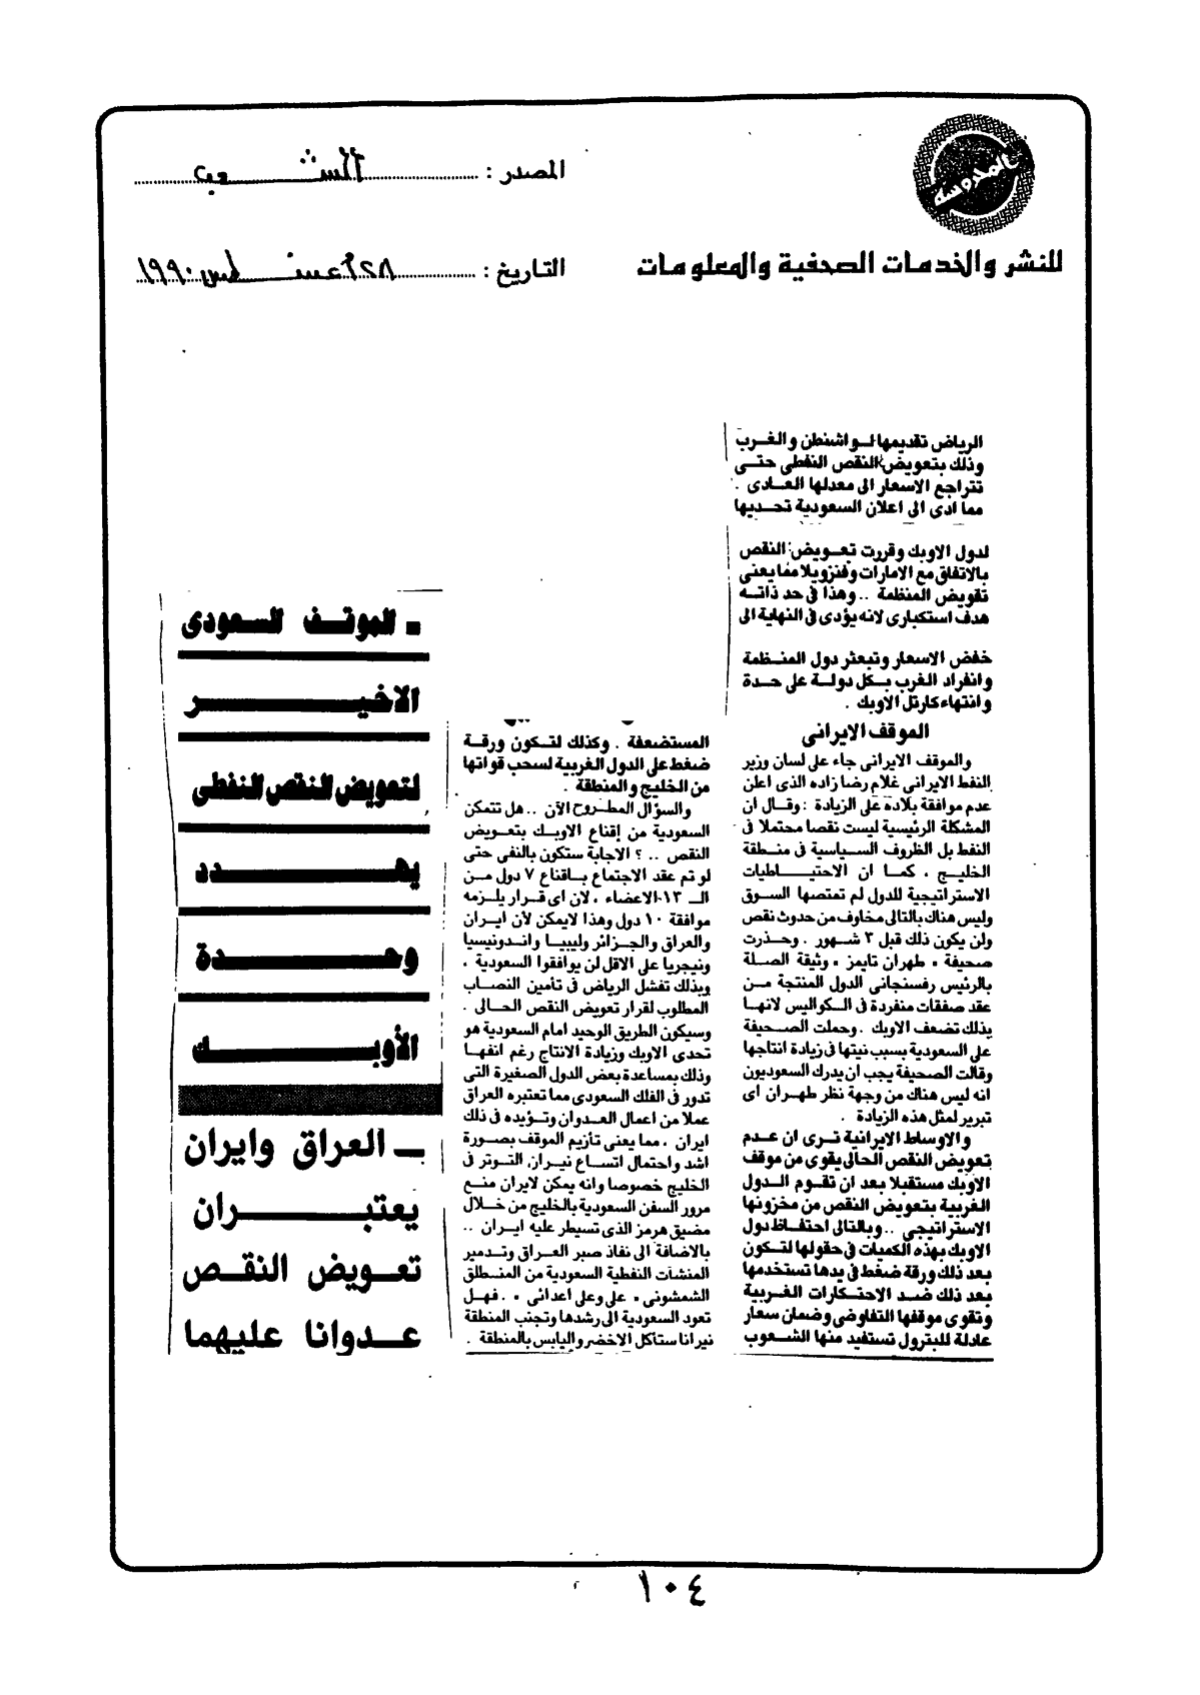 المصدر : الشعب
للنشر والخدمات الصحفية والمعلومات
التاريخ : ٢٨ أغسطس ١٩٩٠
الرياض تقديمها لواشنطن والغرب
وذلك بتعويض النقص النفطى حتى
تتراجع الاسعار الى معدلها العادى .
مما ادى الى اعلان السعودية تحديها
لدول الاوبك وقررت تعويض النقص
بالاتفاق مع الامارات وفنزويلا مما يعنى
تقويض المنظمة .. وهذا فى حد ذاته
هدف استكبارى لانه يؤدى فى النهاية الى
خفض الاسعار وتبعثر دول المنظمة
وانفراد الغرب بكل دولة على حدة
وانتهاء كارتل الاوبك .
الموقف الايرانى
والموقف الايرانى جاء على لسان وزير
النفط الايرانى غلام رضا زاده الذى اعلن
عدم موافقة بلاده على الزيادة : وقال ان
المشكلة الرئيسية ليست نقصا محتملا فى
النفط بل الظروف السياسية فى منطقة
الخليج ، كما ان الاحتياطيات
الاستراتيجية للدول لم تمتصها السوق
وليس هناك بالتالى مخاوف من حدوث نقص
ولن يكون ذلك قبل ٣ شهور . وحذرت
صحيفة « طهران تايمز » وثيقة الصلة
بالرئيس رفسنجانى الدول المنتجة من
عقد صفقات منفردة فى الكواليس لانها
بذلك تضعف الاوبك . وحملت الصحيفة
على السعودية بسبب نيتها فى زيادة انتاجها
وقالت الصحيفة يجب ان يدرك السعوديون
انه ليس هناك من وجهة نظر طهران اى
تبرير لمثل هذه الزيادة .
والاوساط الايرانية ترى ان عدم
تعويض النقص الحالى يقوى من موقف
الاوبك مستقبلا بعد ان تقوم الدول
الغربية بتعويض النقص من مخزونها
الاستراتيجى .. وبالتالى احتفاظ دول
الاوبك بهذه الكميات فى حقولها لتكون
بعد ذلك ورقة ضغط فى يدها تستخدمها
بعد ذلك ضد الاحتكارات الغربية
وتقوى موقفها التفاوضى وضمان سعار
عادلة للبترول تستفيد منها الشعوب
المستضعفة . وكذلك لتكون ورقة
ضغط على الدول الغربية لسحب قواتها
من الخليج والمنطقة .
والسؤال المطروح الآن .. هل تتمكن
السعودية من إقناع الاوبك بتعويض
النقص .. ؟ الاجابة ستكون بالنفى حتى
لو تم عقد الاجتماع باقناع ٧ دول من
الـ ١٣ـ الاعضاء ، لان اى قرار يلزمه
موافقة ١٠ دول وهذا لايمكن لأن ايران
والعراق والجزائر وليبيا واندونيسيا
ونيجريا على الاقل لن يوافقوا السعودية .
وبذلك تفشل الرياض فى تأمين النصاب
المطلوب لقرار تعويض النقص الحالى .
وسيكون الطريق الوحيد امام السعودية هو
تحدى الاوبك وزيادة الانتاج رغم انفها
وذلك بمساعدة بعض الدول الصغيرة التى
تدور فى الفلك السعودى مما تعتبره العراق
عملا من اعمال العدوان وتؤيده فى ذلك
ايران ، مما يعنى تأزيم الموقف بصورة
اشد واحتمال اتساع نيران التوتر فى
الخليج خصوصا وانه يمكن لايران منع
مرور السفن السعودية بالخليج من خلال
مضيق هرمز الذى تسيطر عليه ايران ..
بالاضافة الى نفاذ صبر العراق وتدمير
المنشآت النفطية السعودية من المنطلق
الشمشونى « على وعلى اعدائى » . فهل
تعود السعودية الى رشدها وتجنب المنطقة
نيرانا ستأكل الاخضر واليابس بالمنطقة .
ـ الموقف السعودى
الاخير
لتعويض النقص النفطى
يهدد
وحدة
الأوبك
ـ العراق وايران
يعتبران
تعويض النقص
عدوانا عليهما
١٠٤